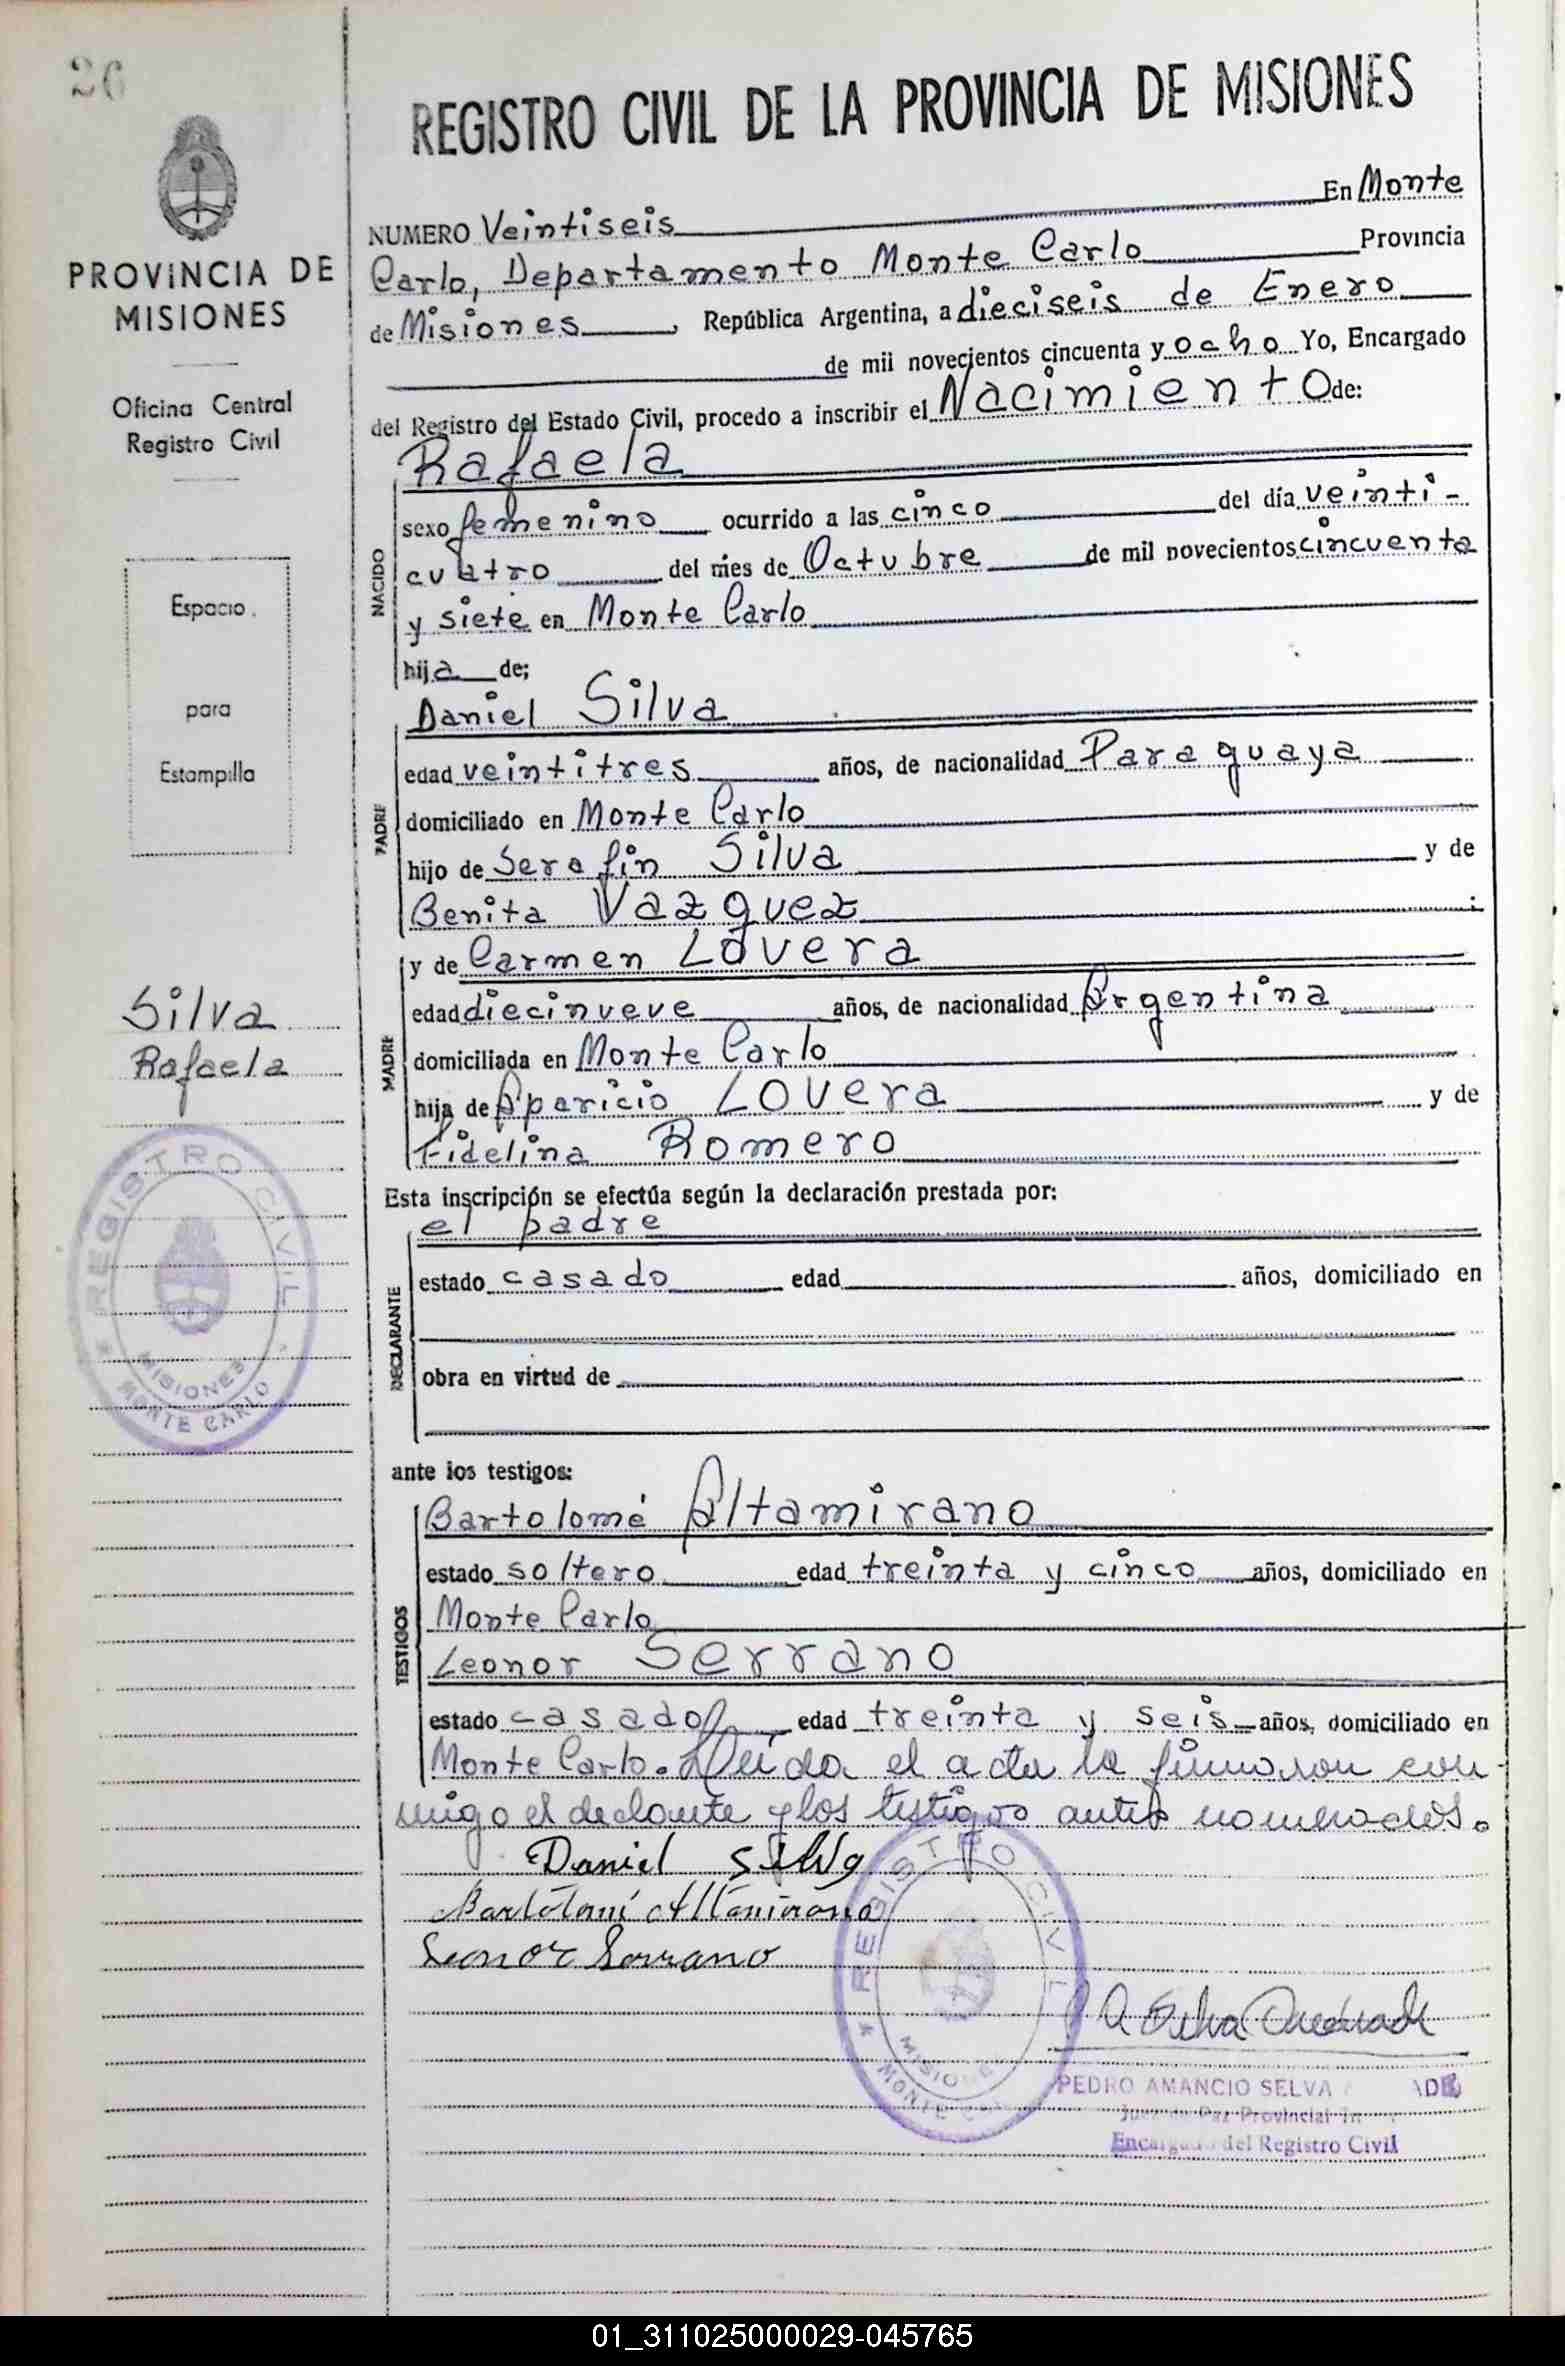 26
PROVINCIA DE
MISIONES
Oficina Central
Registro Civil
Espacio
para
Estampilla
Silva
Rafaela
REGISTRO CIVIL
MISIONES
MONTE CARLO
REGISTRO CIVIL DE LA PROVINCIA DE MISIONES
NUMERO Veintiseis En Monte
Carlo, Departamento Monte Carlo Provincia
de Misiones, República Argentina, a dieciseis de Enero
de mil novecientos cincuenta y ocho Yo, Encargado
del Registro del Estado Civil, procedo a inscribir el Nacimiento de:
NACIDO
Rafaela
sexo femenino ocurrido a las cinco del día veinti-
cuatro del mes de Octubre de mil novecientos cincuenta
y siete en Monte Carlo
hija de;
PADRE
Daniel Silva
edad veintitres años, de nacionalidad Paraguaya
domiciliado en Monte Carlo
hijo de Serafin Silva y de
Benita Vazquez ;
MADRE
y de Carmen Lovera
edad diecinueve años, de nacionalidad Argentina
domiciliada en Monte Carlo
hija de Aparicio Lovera y de
Fidelina Romero
Esta inscripción se efectúa según la declaración prestada por:
DECLARANTE
el padre
estado casado edad años, domiciliado en
obra en virtud de
ante los testigos:
TESTIGOS
Bartolomé Altamirano
estado soltero edad treinta y cinco años, domiciliado en
Monte Carlo
Leonor Serrano
estado casado edad treinta y seis años, domiciliado en
Monte Carlo. Leída el acta la firmaron con
migo el y los testigos antes
Daniel Silva
Bartolomé Altamirano
Leonor Serrano
REGISTRO CIVIL
MONTE
PEDRO AMANCIO SELVA
Juez de Paz Provincial
Encargado del Registro Civil
01_311025000029-045765